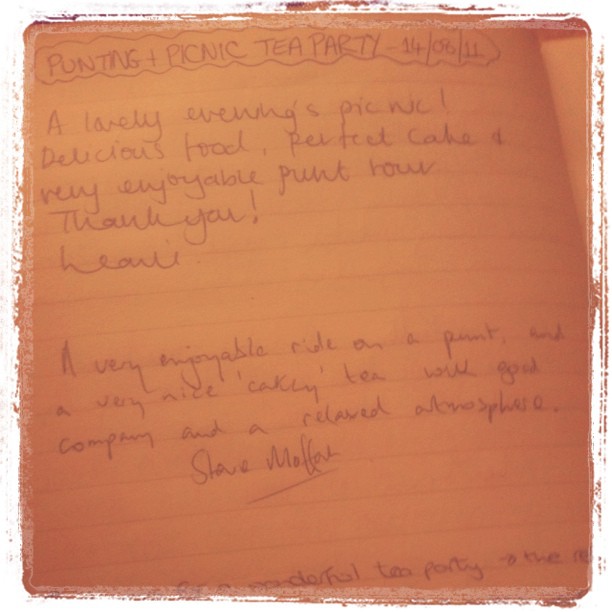 PUNTING + PICNIC TEA PARTY - 14/08/11
A lovely evening's picnic!
Delicious food, perfect cake &
very enjoyable punt tour.
Thank you!
A very enjoyable ride on a punt, and
a very nice 'cakey' tea with good
company and a relaxed atmosphere.
Steve Moffat
for a wonderful tea party → the